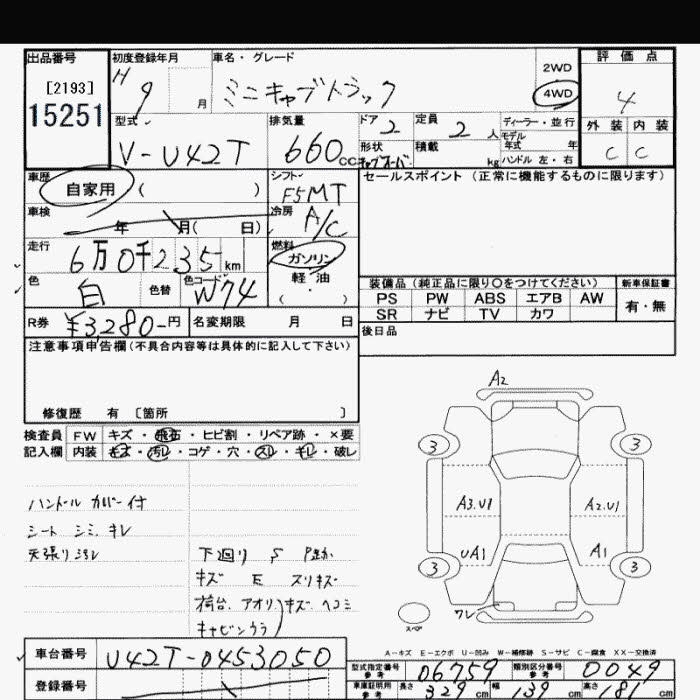 出品番号
[2193]
15251
初度登録年月
H 9 月
車名・グレード
ミニキャブトラック
2WD
4WD
評価点
4
外装 内装
C C
型式
V-U42T
排気量
660 cc
ドア 2
形状
定員 2 人
積載 kg
ディーラー・並行
モデル年式 年
ハンドル 左・右
車歴
自家用 ( )
シフト
F5MT
車検
年 月( 日)
冷房
A/C
走行
6万0千235 km
燃料
ガソリン
軽・油
( ・ )
色
白
色替
色コード
W74
R券 ¥3,280-円
名変期限 月 日
セールスポイント(正常に機能するものに限ります)
装備品(純正品に限り〇をつけてください)
新車保証書
PS PW ABS エアB AW
SR ナビ TV カワ
有・無
後日品
注意事項申告欄(不具合内容等は具体的に記入して下さい)
修復歴 有 〔箇所 〕
検査員記入欄
FW キズ・飛石・ヒビ割・リペア跡・×要
内装 キズ・汚レ・コゲ・穴・スレ・キレ・破レ
ハンドルカバー付
シート シミ、キレ
天張り汚レ
下廻り S
キズ E スリキズ
荷台、アオリ キズ ヘコミ
キャビンウラ
A2
3
3
A3.U1
A2.U1
UA1
A1
3
3
ワレ
スペア
A-キズ E-エクボ U-凹み W-補修跡 S-サビ C-腐食 XX-交換済
車台番号
U42T-0453050
登録番号
型式指定番号 参考
06759
類別区分番号 参考
0049
車庫証明用 参考
長さ 329 cm
幅 139 cm
高さ 181 cm